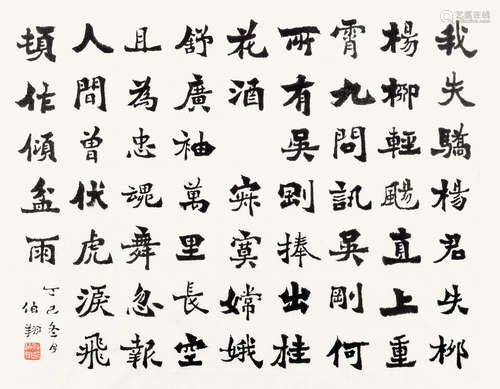 我失驕楊君失柳
楊柳輕颺直上重
霄九問訊吳剛何
所有吳剛捧出桂
花酒 寂寞嫦娥
舒廣袖 萬里長空
且為忠魂舞忽報
人間曾伏虎淚飛
頓作傾盆雨
丁巳
伯翔